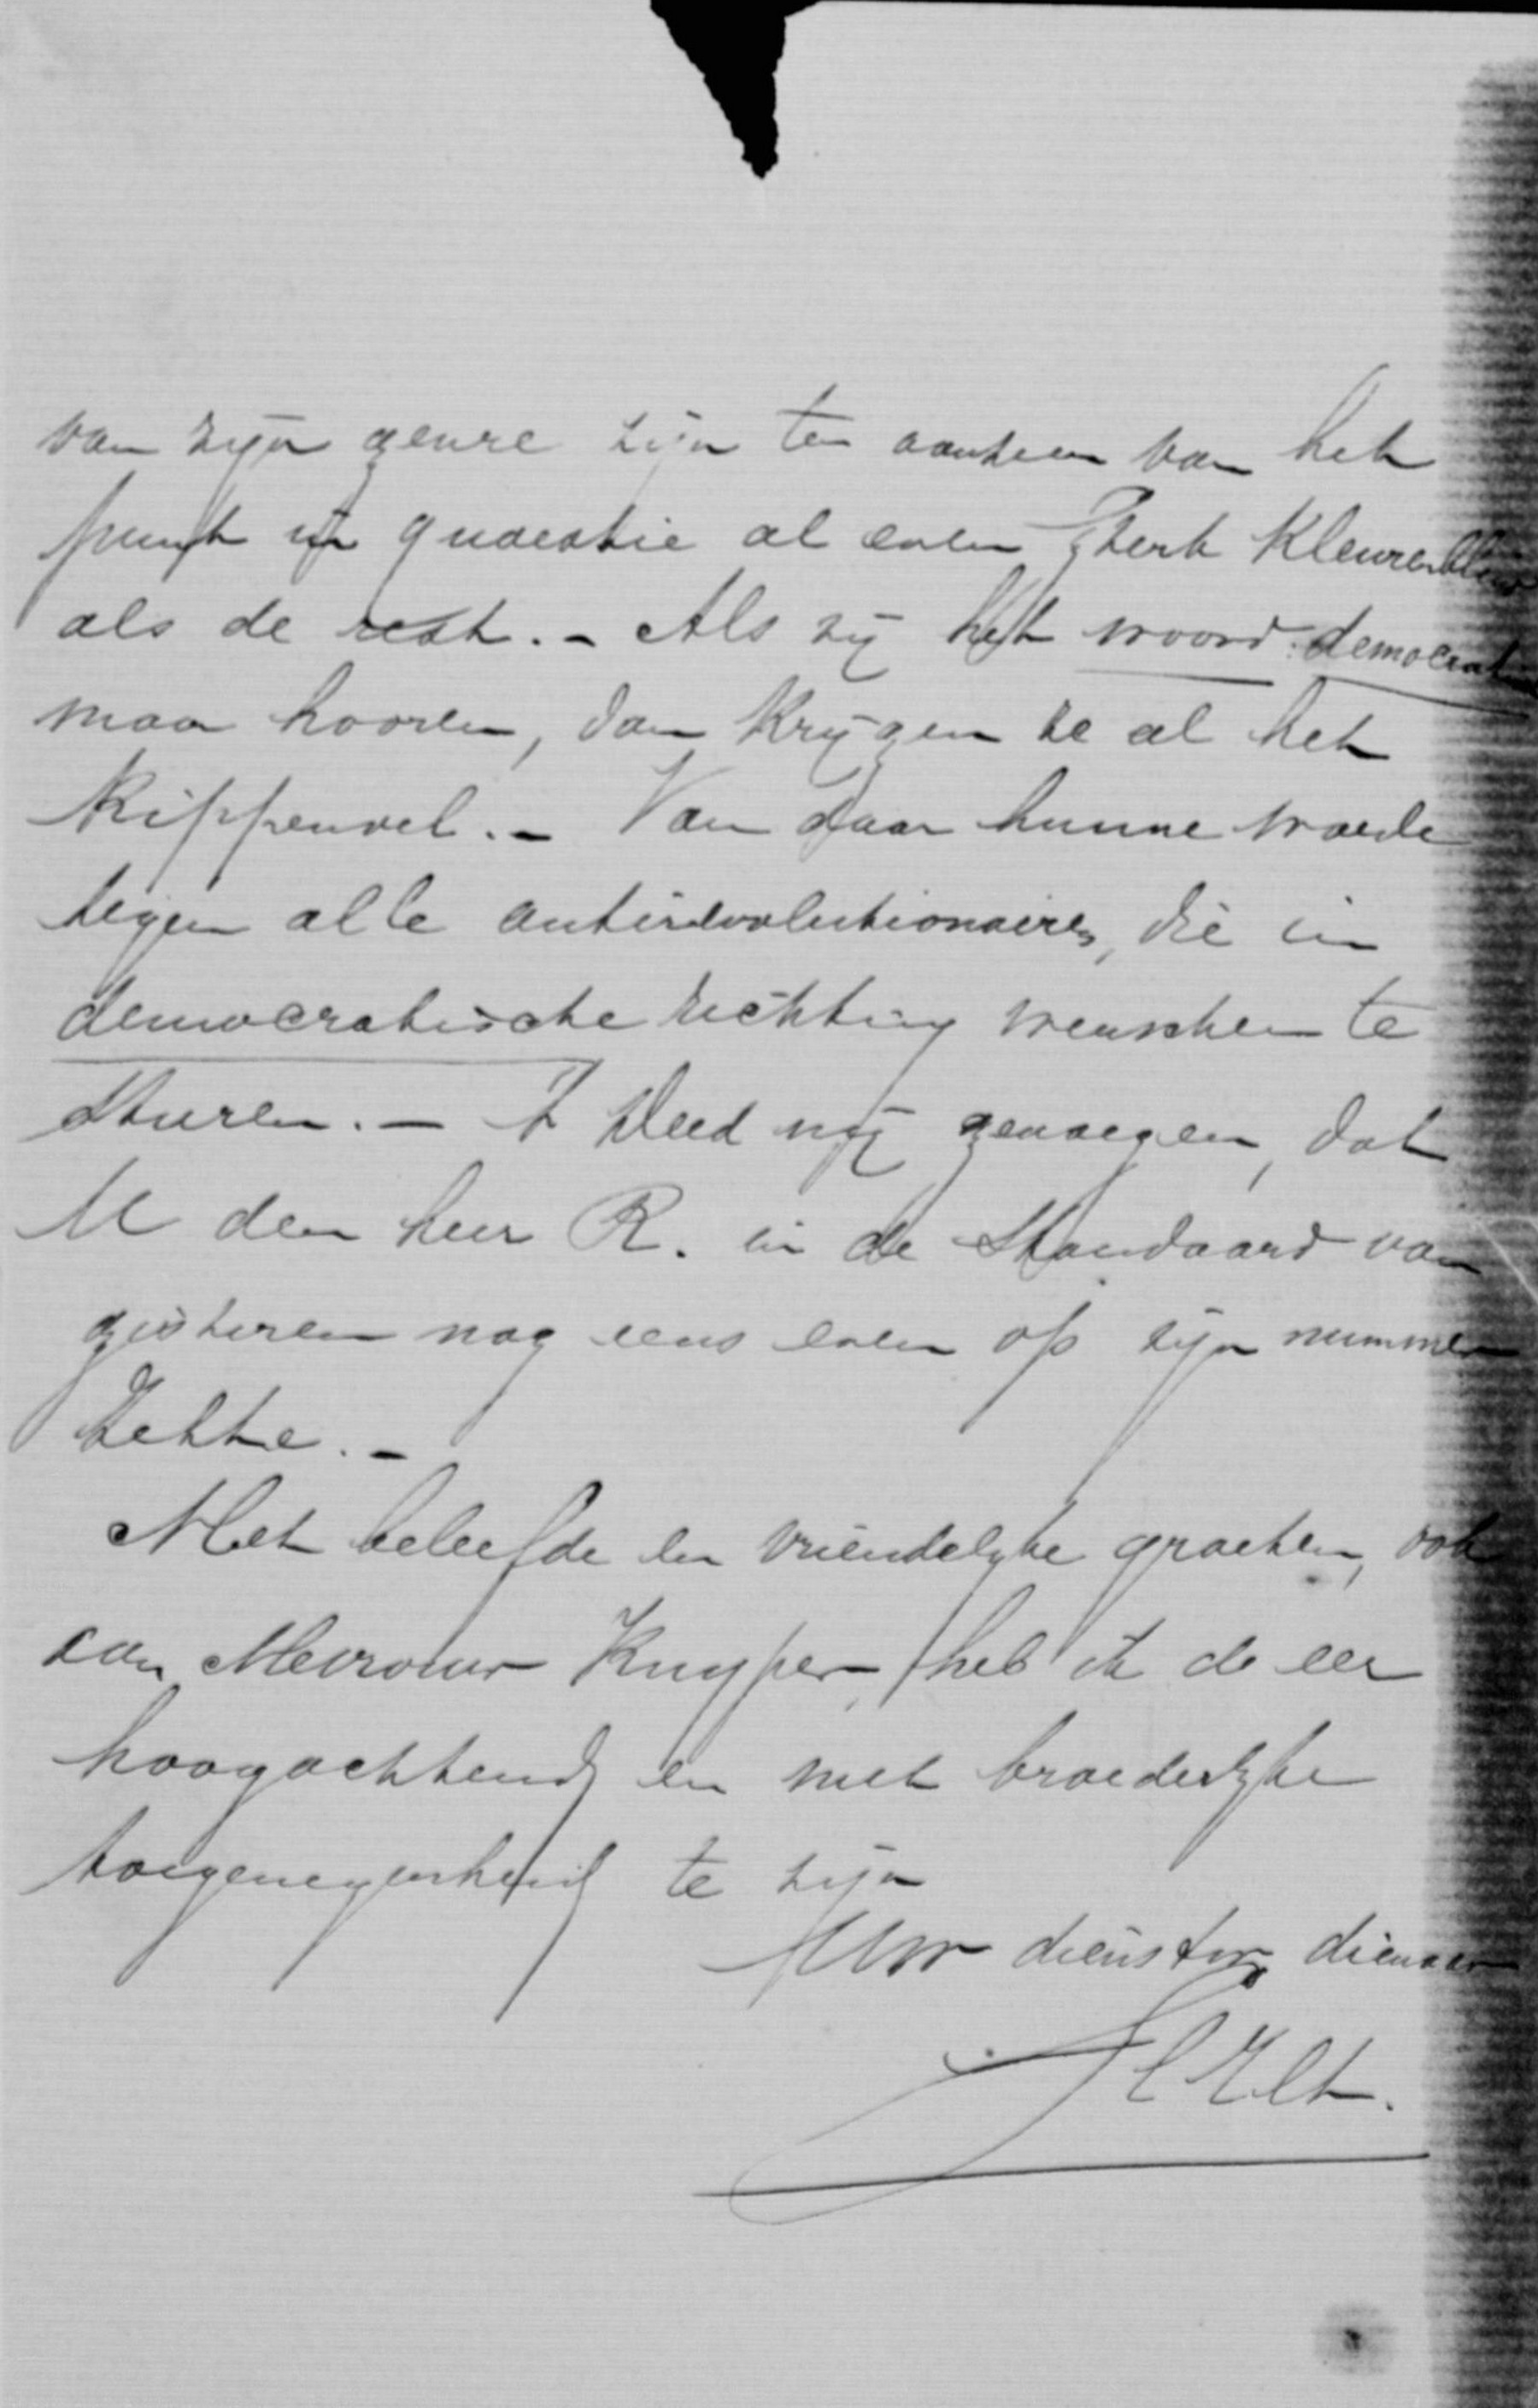 van zijn genre zijn ten aanzien van het
punt in quaestie al even sterk kleurenblind
als de rest. - Als zij het woord: democratie
maar hooren, dan krijgen ze al het
kippenvel. - Van daar hunne woede
tegen alle antirevolutionairen, die in
democratische richting wenschen te
sturen. - 't Deed mij genoegen, dat
U den heer R. in de Standaard van
gisteren nog eens even op zijn nummer
zette. -
Met beleefde en vriendelijke groeten, ook
aan Mevrouw Kuyper, heb ik de eer
hoogachtend en met broederlijke
toegenegenheid te zijn
Uw dienstw dienaar